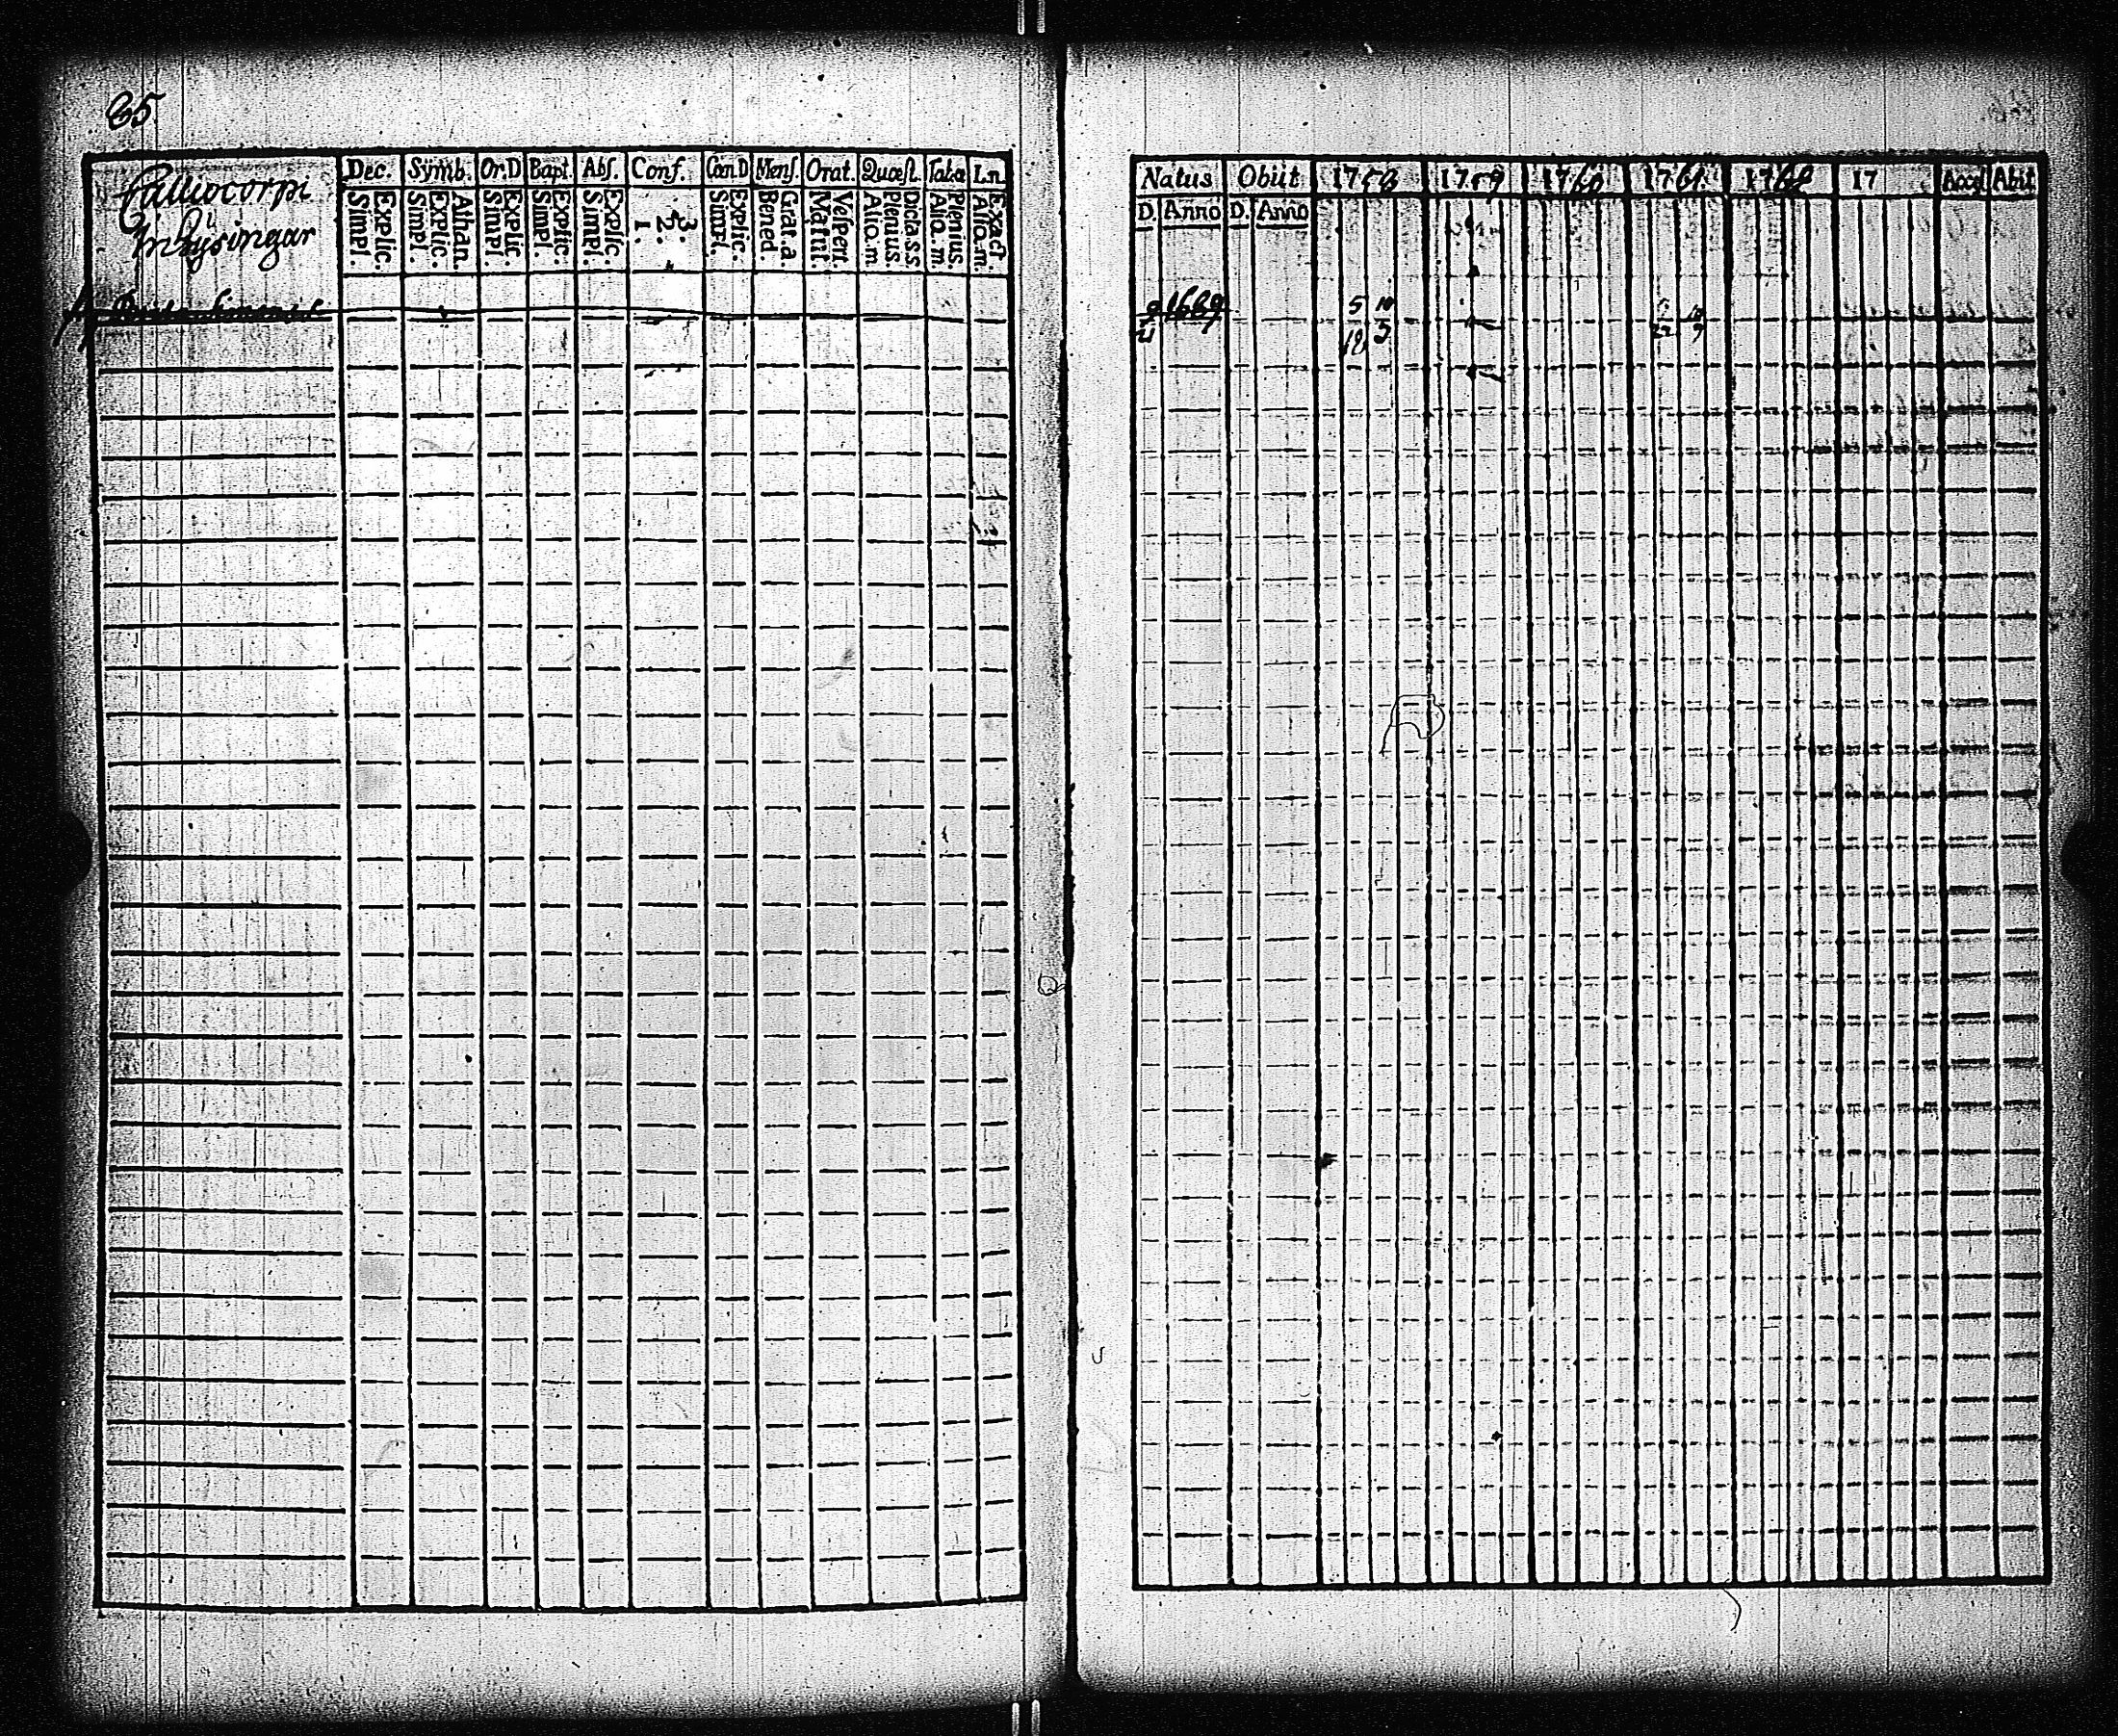 85
Dec. Symb. Or.D Bapt. Abs. Conf. Cœn.D Mens. Orat. Quæst. Taba I.n
Calliocorpi
Inhysingar
Simpl. Explic. Simpl. Explic. Athan. Simpl. Explic. Simpl. Explic. Simpl. Explic. 1. 2. 3. Simpl. Explic. Bened. Grat.a. Matut. Vesper. Alio.m Plenius Dicta.s.s Alio.m Plenius. Alio.m. Exact.
Natus Obiit 1758 1759 1760 1761 17 Accs Abit
D. Anno D. Anno
9 1669 5 10
4 18 3 22 9